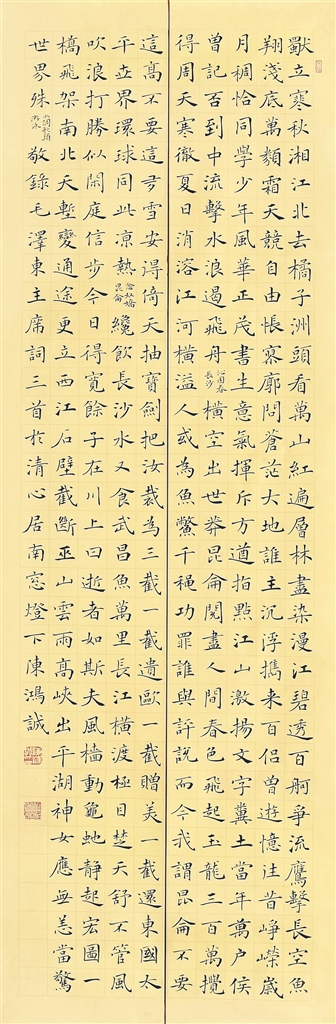 獨立寒秋湘江北去橘子洲頭看萬山紅遍層林盡染漫江碧透百舸爭流鷹擊長空魚
翔淺底萬類霜天競自由悵寥廓問蒼茫大地誰主沉浮攜來百侶曾遊憶往昔崢嶸歲
月稠恰同學少年風華正茂書生意氣揮斥方遒指點江山激揚文字糞土當年萬户侯
曾記否到中流擊水浪遏飛舟沁園春長沙橫空出世莽昆侖閱盡人間春色飛起玉龍三百萬攪
得周天寒徹夏日消溶江河橫溢人或為魚鱉千穐功罪誰與評說而今我謂昆侖不要
這高不要這多雪安得倚天抽寶劍把汝裁為三截一截遺歐一截贈美一截還東國太
平世界環球同此涼熱念奴嬌昆侖纔飲長沙水又食武昌魚萬里長江橫渡極目楚天舒不管風
吹浪打勝似閑庭信步今日得寬餘子在川上曰逝者如斯夫風檣動龜蛇靜起宏圖一
橋飛架南北天塹變通途更立西江石壁截斷巫山雲雨高峽出平湖神女應無恙當驚
世界殊水調歌頭游泳敬錄毛澤東主席詞三首於清心居南窓燈下陳鴻誠